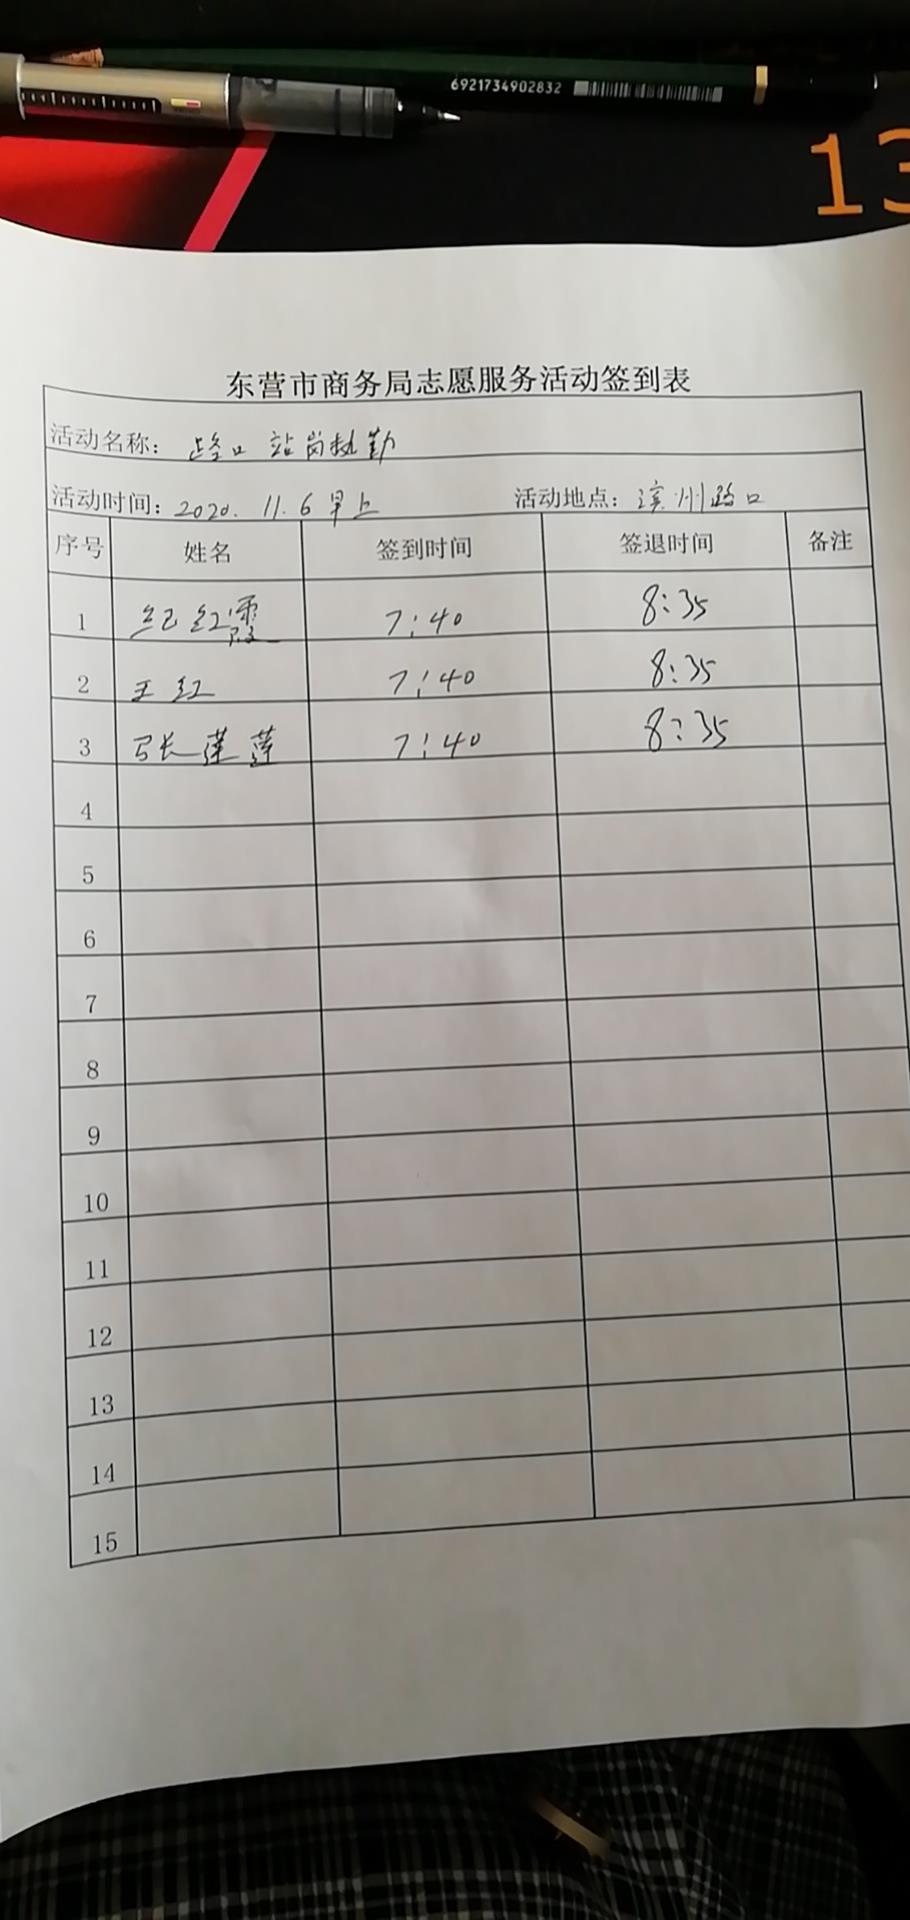 6921734902832
13
东营市商务局志愿服务活动签到表
活动名称：路口站岗执勤
活动时间：2020.11.6早上 活动地点：滨州路口
序号 姓名 签到时间 签退时间 备注
1 纪红霞 7:40 8:35
2 王红 7:40 8:35
3 张莲莲 7:40 8:35
4
5
6
7
8
9
10
11
12
13
14
15